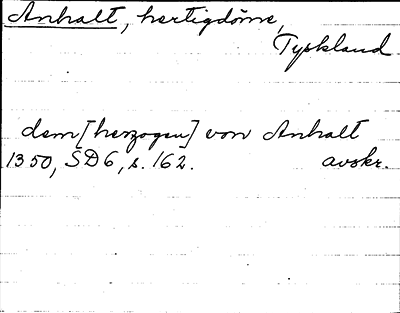 Anhalt, hertigdöme,
Tyskland
dem [herzogen] von Anhalt
1350, SD6, s. 162. avskr.